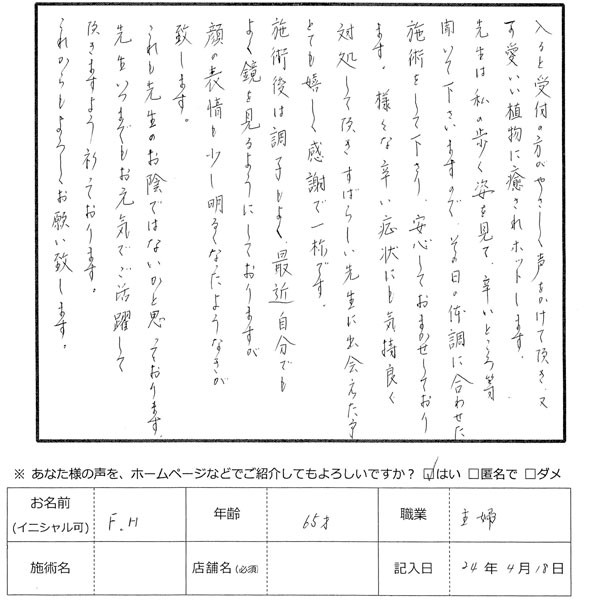 入ると受付の方がやさしく声をかけて頂き、又
可愛いい植物に癒されホットします。
先生は私の歩く姿を見て、辛いところ等
聞いて下さいますので、その日の体調に合わせた
施術をして下さり、安心しておまかせしており
ます。様々な辛い症状にも気持良く
対処して頂きすばらしい先生に出会えた事
とても嬉しく感謝で一杯です。
施術後は調子もよく、最近自分でも
よく鏡を見るようにしておりますが
顔の表情も少し明るくなったようなきが
致します。
これも先生のお陰ではないかと思っております。
先生いつまでもお元気でご活躍して
頂きますよう祈っております。
これからもよろしくお願い致します。
※ あなた様の声を、ホームページなどでご紹介してもよろしいですか？ ☑はい □匿名で □ダメ
お名前 (イニシャル可) F.H 年齢 65才 職業 主婦
施術名 店舗名(必須) 記入日 24年4月18日